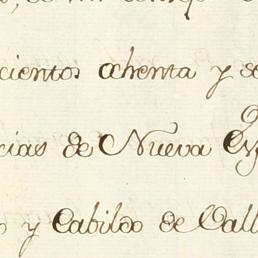 cientos ochenta y se
cias de Nueva
o y Cabildo de Vall